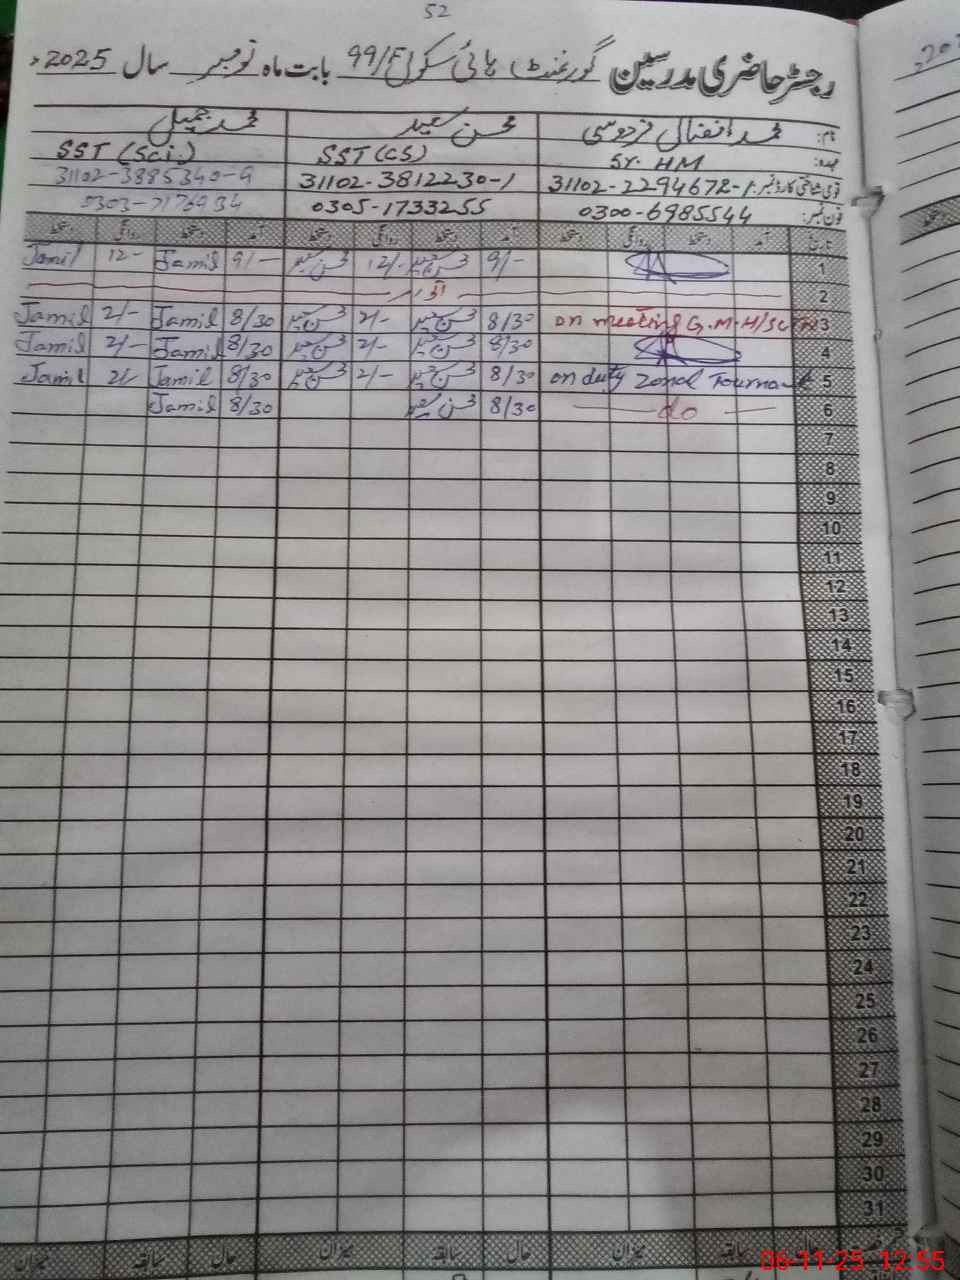 52
رجسٹر حاضری مدرسین گورنمنٹ ہائی سکول 99/F بابت ماہ نومبر سال 2025ء
نام: محمد افضال فردوسی محسن سعید محمد جمیل
عہدہ: Sr. HM SST (CS) SST (Sci.)
قومی شناختی کارڈ نمبر: 31102-2294672-1 31102-3812230-1 31102-3885340-9
فون نمبر: 0300-6985544 0305-1733255
تاریخ آمد دستخط روانگی دستخط آمد دستخط روانگی دستخط آمد دستخط روانگی دستخط
1 9/- محسن سعید 12/- محسن سعید 9/- Jamil 12- Jamil
2 اتوار
3 on meeting G.M.H/S 8/30 محسن سعید 2/- محسن سعید 8/30 Jamil 2/- Jamil
4 8/30 محسن سعید 2/- محسن سعید 8/30 Jamil 2/- Jamil
5 on duty Zonal Tournament 8/30 محسن سعید 2/- محسن سعید 8/30 Jamil 2/- Jamil
6 — do — 8/30 محسن سعید 8/30 Jamil
7
8
9
10
11
12
13
14
15
16
17
18
19
20
21
22
23
24
25
26
27
28
29
30
31
حال سابقہ میزان حال سابقہ میزان حال سابقہ میزان
06-11-25 12:55